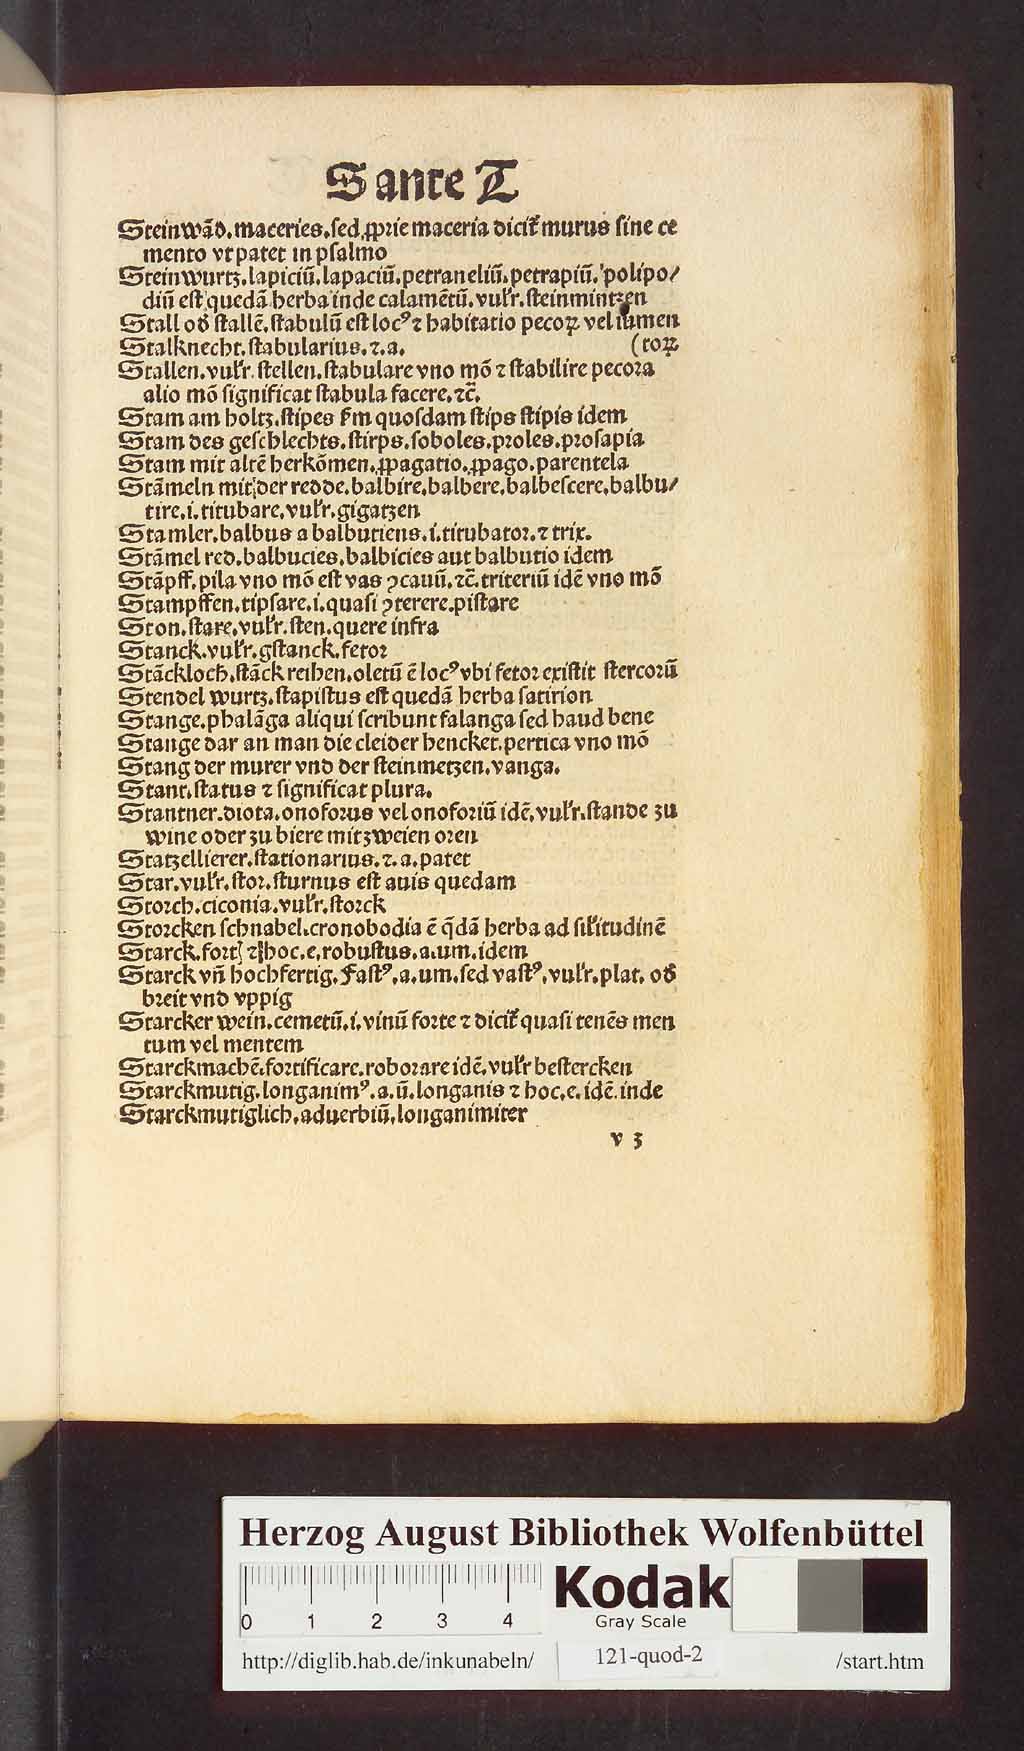 S ante T
Steinwãd.maceries.sed ꝓprie maceria dicit᷑ murus sine ce
mento vt patet in psalmo
Steinwurtz.lapiciũ.lapaciũ.petraneliũ.petrapiũ.polipo/
diũ est quedã herba inde calamẽtũ.vul'r.steinmintzen
Stall od' stallẽ.stabulũ est locꝰ ⁊ habitatio pecoꝝ vel iumen
Stalknecht.stabularius.⁊.a. (toꝝ
Stallen.vul'r.stellen.stabulare vno mõ ⁊ stabilire pecora
alio mõ significat stabula facere.⁊c̃.
Stam am holtz.stipes s'm quosdam stips stipis idem
Stam des geschlechts.stirps.soboles.proles.prosapia
Stam mit altẽ herkõmen.ꝓpagatio.ꝓpago.parentela
Stãmeln mit der redde.balbire.balbere.balbescere.balbu/
tire.i.titubare.vul'r.gigatzen
Stamler.balbus a balbutiens.i.titubator.⁊ trix.
Stãmel red.balbucies.balbicies aut balbutio idem
Stãpff.pila vno mõ est vas ꝯcauũ.⁊c̃.triteriũ idẽ vno mõ
Stampffen.tipsare.i.quasi ꝯterere.pistare
Ston.stare.vul'r.sten.quere infra
Stanck.vul'r.gstanck.fetor
Stãckloch.stãck reihen.oletũ ẽ locꝰ vbi fetor existit stercorũ
Stendel wurtz.stapistus est quedã herba satirion
Stange.phalãga aliqui scribunt falanga sed haud bene
Stange dar an man die cleider hencket.pertica vno mõ
Stang der murer vnd der steinmetzen.vanga.
Stant.status ⁊ significat plura.
Stantner.diota.onoforus vel onoforiũ idẽ.vul'r.stande zu
wine oder zu biere mit zweien oren
Statzellierer.stationarius.⁊.a.patet
Star.vul'r.stor.sturnus est auis quedam
Storch.ciconia.vul'r.storck
Storcken schnabel.cronobodia ẽ q̃dã herba ad sil'itudinẽ
Starck.fortꝭ ⁊ hoc.e.robustus.a.um.idem
Starck vñ hochfertig.Fastꝰ.a.um.sed vastꝰ.vul'r.plat. od'
breit vnd vppig
Starcker wein.cemetũ.i.vinũ forte ⁊ dicit᷑ quasi tenẽs men
tum vel mentem
Starckmachẽ.fortificare.roborare idẽ.vul'r bestercken
Starckmutig.longanimꝰ.a.ũ.longanis ⁊ hoc.e.idẽ.inde
Starckmutiglich.aduerbiũ.longanimiter
v 3
Herzog August Bibliothek Wolfenbüttel
0 1 2 3 4
Kodak
Gray Scale
http://diglib.hab.de/inkunabeln/ 121-quod-2 /start.htm